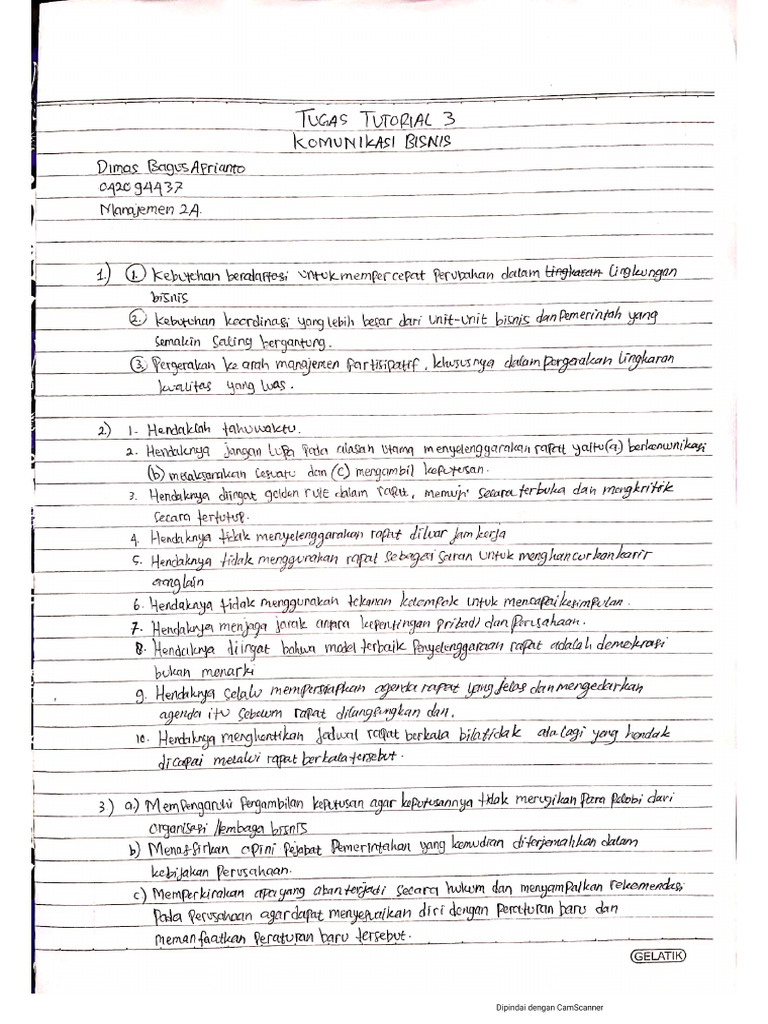 TUGAS TUTORIAL 3
KOMUNIKASI BISNIS
Dimas Bagus Aprianto
042094437
Manajemen 2A.
1.) 1. Kebutuhan beradaptasi untuk mempercepat perubahan dalam tingkaran lingkungan
bisnis
2. Kebutuhan koordinasi yang lebih besar dari unit-unit bisnis dan pemerintah yang
semakin saling bergantung.
3. Pergerakan ke arah manajemen partisipatif, khususnya dalam pergerakan lingkaran
kualitas yang luas.
2.) 1. Hendaklah tahu waktu.
2. Hendaknya jangan lupa pada alasan utama menyelenggarakan rapat yaitu (a) berkomunikasi
(b) melaksanakan sesuatu dan (c) mengambil keputusan.
3. Hendaknya diingat golden rule dalam rapat, memuji secara terbuka dan mengkritik
secara tertutup.
4. Hendaknya tidak menyelenggarakan rapat diluar jam kerja
5. Hendaknya tidak menggunakan rapat sebagai saran untuk menghancurkan karir
orang lain
6. Hendaknya tidak menggunakan tekanan kelompok untuk mencapai kesimpulan.
7. Hendaknya menjaga jarak antara kepentingan pribadi dan perusahaan.
8. Hendaknya diingat bahwa model terbaik penyelenggaraan rapat adalah demokrasi
bukan menarki
9. Hendaknya selalu mempersiapkan agenda rapat yang jelas dan mengedarkan
agenda itu sebelum rapat dilangsungkan dan.
10. Hendaknya menghentikan jadwal rapat berkala bila tidak ada lagi yang hendak
dicapai melalui rapat berkala tersebut.
3.) a.) Mempengaruhi pengambilan keputusan agar keputusannya tidak merugikan para pelobi dari
organisasi/lembaga bisnis
b) Menafsirkan opini pejabat pemerintahan yang kemudian diterjemahkan dalam
kebijakan perusahaan.
c) Memperkirakan apa yang akan terjadi secara hukum dan menyampaikan rekomendasi
pada perusahaan agar dapat menyesuaikan diri dengan peraturan baru dan
memanfaatkan peraturan baru tersebut.
GELATIK
Dipindai dengan CamScanner